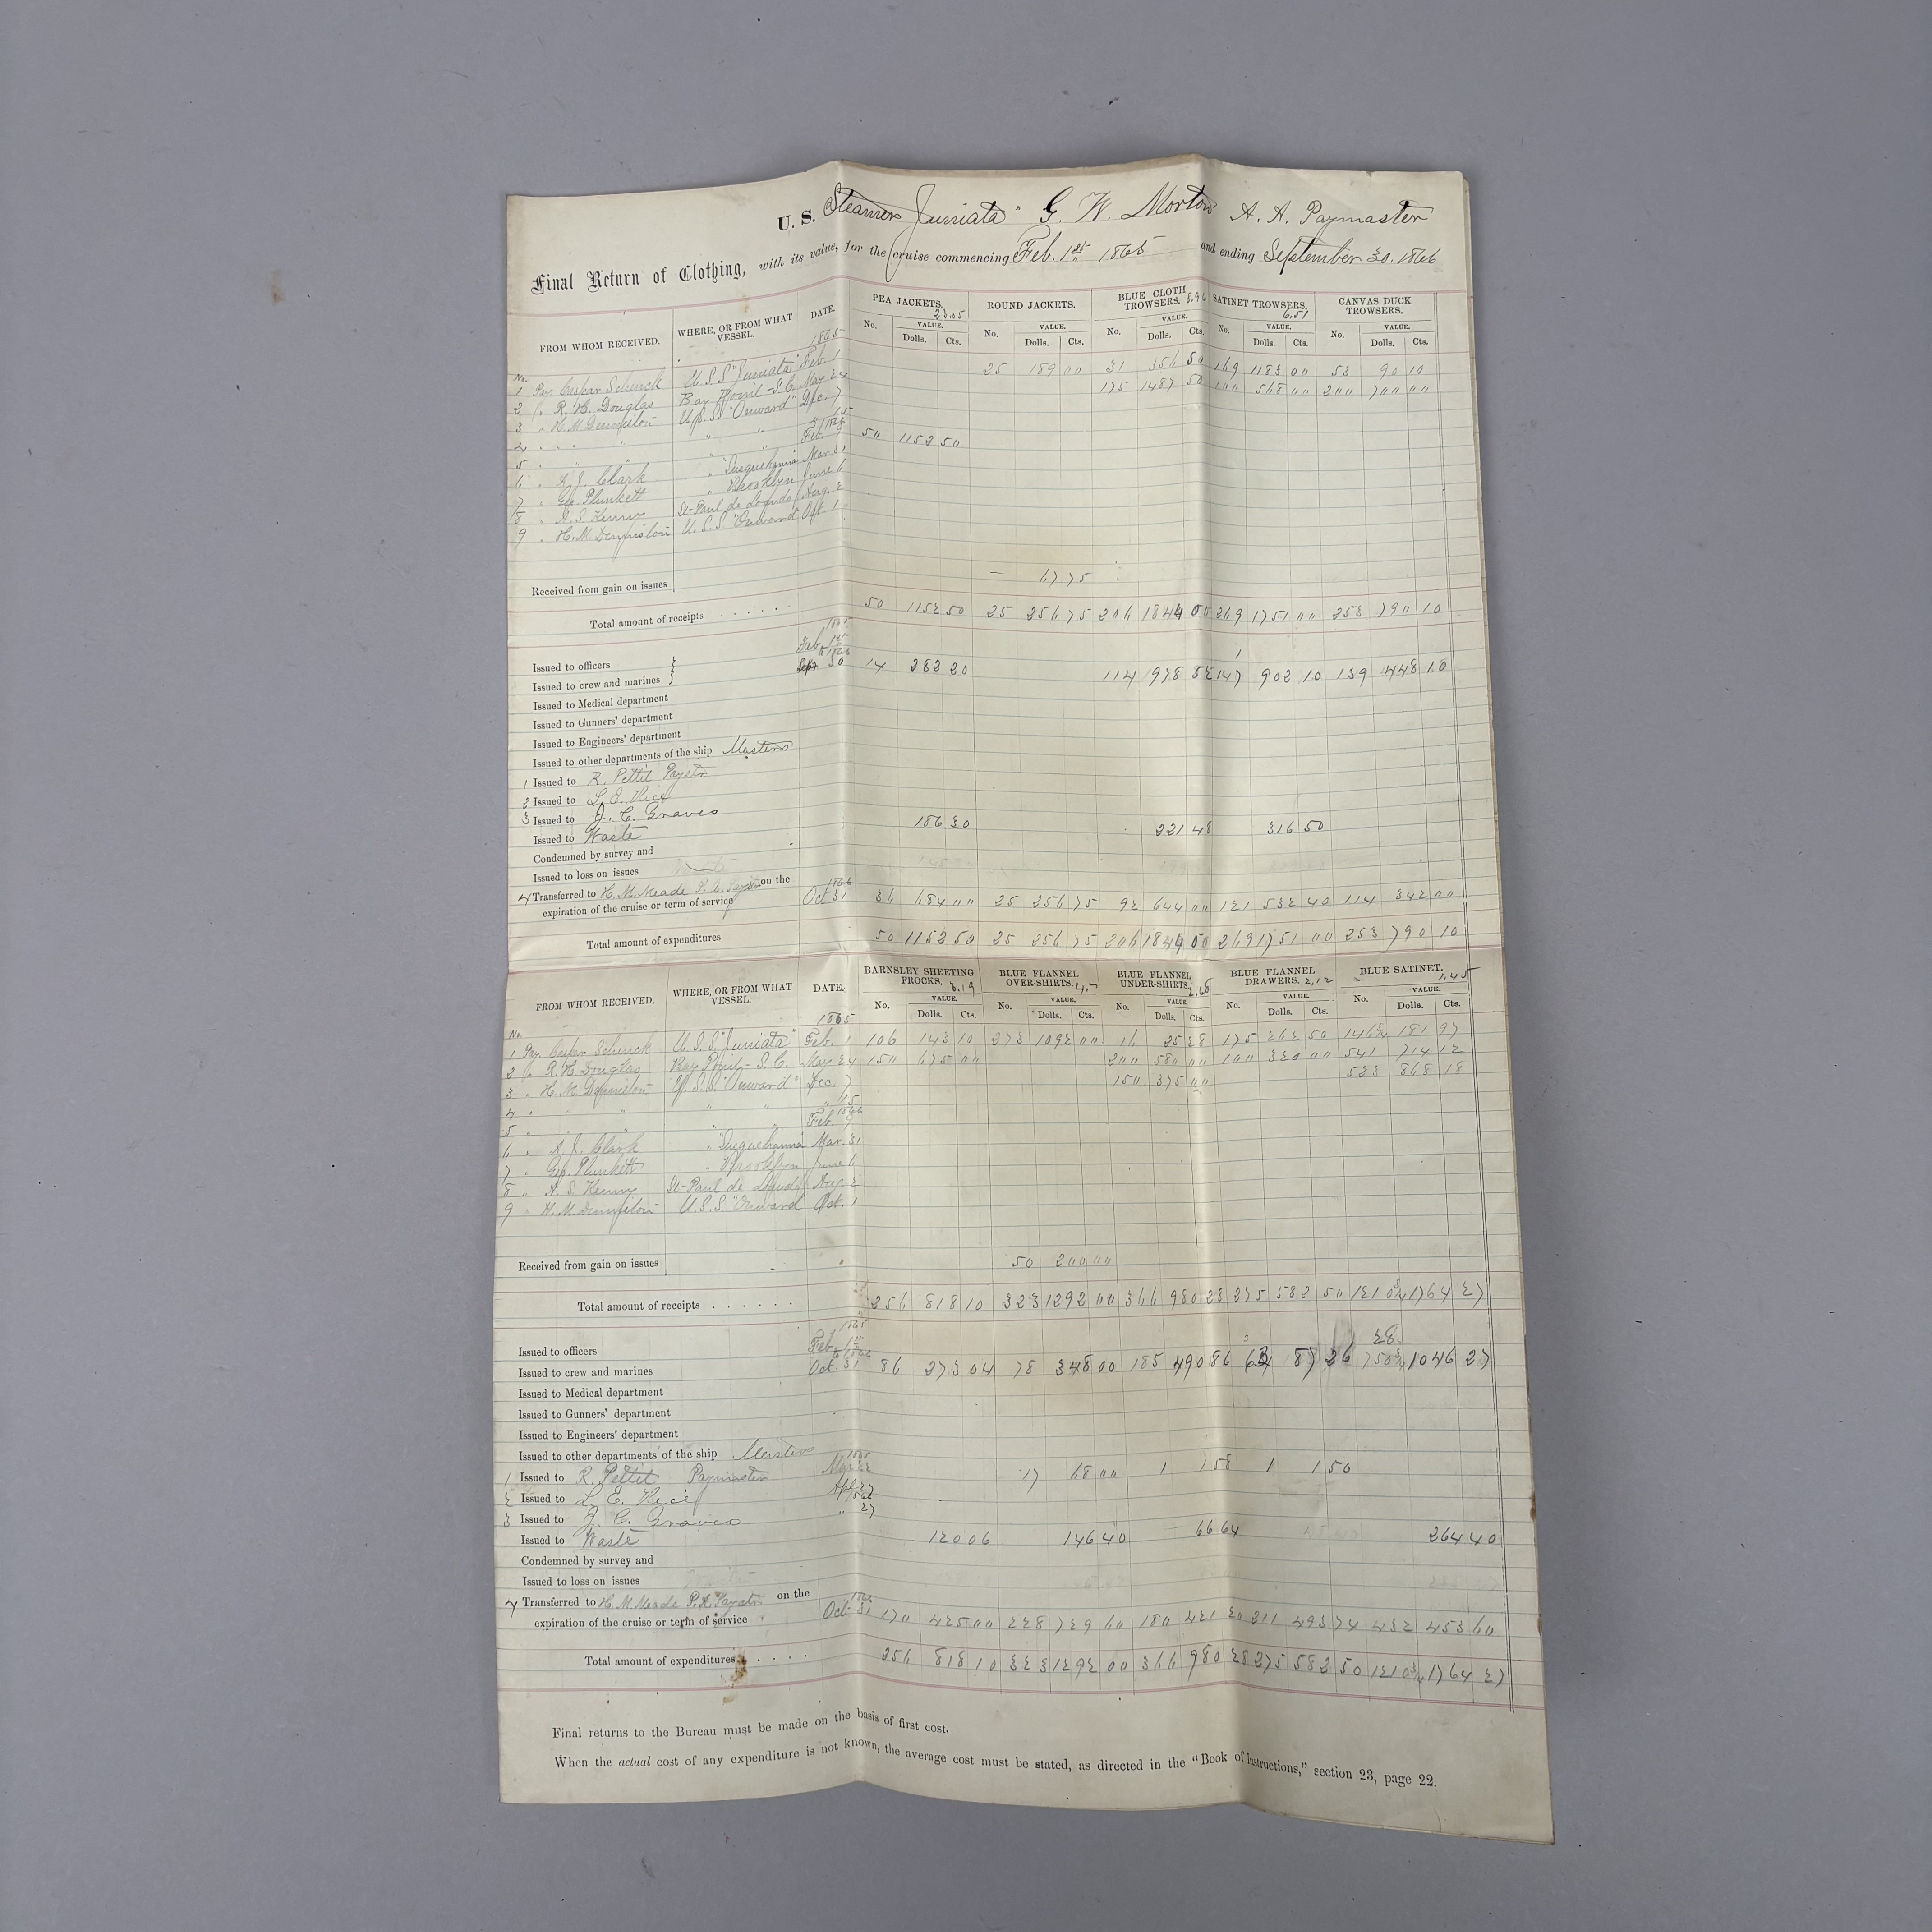 U. S. Steamer "Juniata" G. W. Morton A. A. Paymaster
Final Return of Clothing, with its value, for the cruise commencing Feb. 1st 1865 and ending September 30. 1866
FROM WHOM RECEIVED. WHERE, OR FROM WHAT VESSEL. DATE. PEA JACKETS. 23.05 ROUND JACKETS. BLUE CLOTH TROWSERS. 8.96 SATINET TROWSERS. 6.51 CANVAS DUCK TROWSERS.
No. VALUE. Dolls. Cts. No. VALUE. Dolls. Cts. No. VALUE. Dolls. Cts. No. VALUE. Dolls. Cts. No. VALUE. Dolls. Cts.
No. 1865
1 Pay. Caspar Schenck U.S.S "Juniata" Feb. 1 25 189 00 31 356 50 169 1183 00 53 90 10
2 " R. H. Douglas Bay Point - S.C. May 24 175 1487 50 100 568 00 200 700 00
3 " H. M. Denniston U.S.S. "Onward" Dec. 7
4 " " " " " " 15
5 " " " " " 1866 Feb. 50 1152 50
6 " A. J. Clark " Susquehanna Mar. 31
7 " Geo. Plunkett " Brooklyn June 6
8 " A. S. Kenny St. Paul de Loando Aug. 2
9 " H. M. Denniston U.S.S "Onward"
Received from gain on issues — 67 75
Total amount of receipts 50 1152 50 25 256 75 206 1844 00 269 1751 00 253 790 10
1865
Issued to officers Feb. 1st to 1866
Issued to crew and marines Sept 30 14 282 20 114 978 52 147 902 10 139 448 10
Issued to Medical department
Issued to Gunners' department
Issued to Engineers' department
Issued to other departments of the ship Masters
1 Issued to R. Pettit Paystr
2 Issued to L. E. Rice
3 Issued to J. C. Graves
Issued to Waste 186 30 221 48 316 50
Condemned by survey and
Issued to loss on issues
4 Transferred to H. M. Meade P. A. Paystr on the 1866
expiration of the cruise or term of service Oct 31 36 684 00 25 256 75 92 644 00 121 532 40 114 342 00
Total amount of expenditures 50 1152 50 25 256 75 206 1844 00 269 1751 00 253 790 10
FROM WHOM RECEIVED. WHERE, OR FROM WHAT VESSEL. DATE. BARNSLEY SHEETING FROCKS. 3.19 BLUE FLANNEL OVER-SHIRTS. 4.– BLUE FLANNEL UNDER-SHIRTS. 2.68 BLUE FLANNEL DRAWERS. 2.12 BLUE SATINET. 1.45
No. VALUE. Dolls. Cts. No. VALUE. Dolls. Cts. No. VALUE Dolls. Cts. No. VALUE. Dolls. Cts. No. VALUE. Dolls. Cts.
No. 1865
1 Pay. Caspar Schenck U.S.S. "Juniata" Feb. 1 106 143 10 273 1092 00 16 25 28 175 262 50 146¾ 181 97
2 " R. H. Douglas Bay Point - S. C. May 24 150 675 00 200 580 00 100 320 00 541 714 12
3 " H. M. Denniston U.S.S. "Onward" Dec. 7 150 375 00 523 868 18
4 " " " " " " 15
5 " " " " " 1866 Feb.
6 " A. J. Clark " "Susquehanna Mar. 31
7 " Geo. Plunkett " Brooklyn June 6
8 " A. S. Kenny St-Paul de Loando Aug. 2
9 " H. M. Denniston U.S.S "Onward Oct. 1
Received from gain on issues " 50 200 00
Total amount of receipts 256 818 10 323 1292 00 366 980 28 275 582 50 1210¾ 1764 27
1865
Issued to officers Feb. 1st to 1866 28
Issued to crew and marines Oct. 31 86 273 04 78 348 00 185 490 86 63 87 26 750¾ 1046 27
Issued to Medical department
Issued to Gunners' department
Issued to Engineers' department
Issued to other departments of the ship Masters 1865
1 Issued to R. Pettit Paymaster Mar 22 17 68 00 1 1 58 1 1 50
2 Issued to L. E. Rice Apl 27
3 Issued to J. C. Graves " 27
Issued to Waste 120 06 146 40 66 64 264 40
Condemned by survey and
Issued to loss on issues
4 Transferred to H. M. Meade P. A. Paystr on the 1866
expiration of the cruise or term of service Oct 31 170 425 00 228 729 60 180 421 20 211 493 74 432 453 60
Total amount of expenditures 256 818 10 323 1292 00 366 980 28 275 582 50 1210¾ 1764 27
Final returns to the Bureau must be made on the basis of first cost.
When the actual cost of any expenditure is not known, the average cost must be stated, as directed in the "Book of Instructions," section 23, page 22.